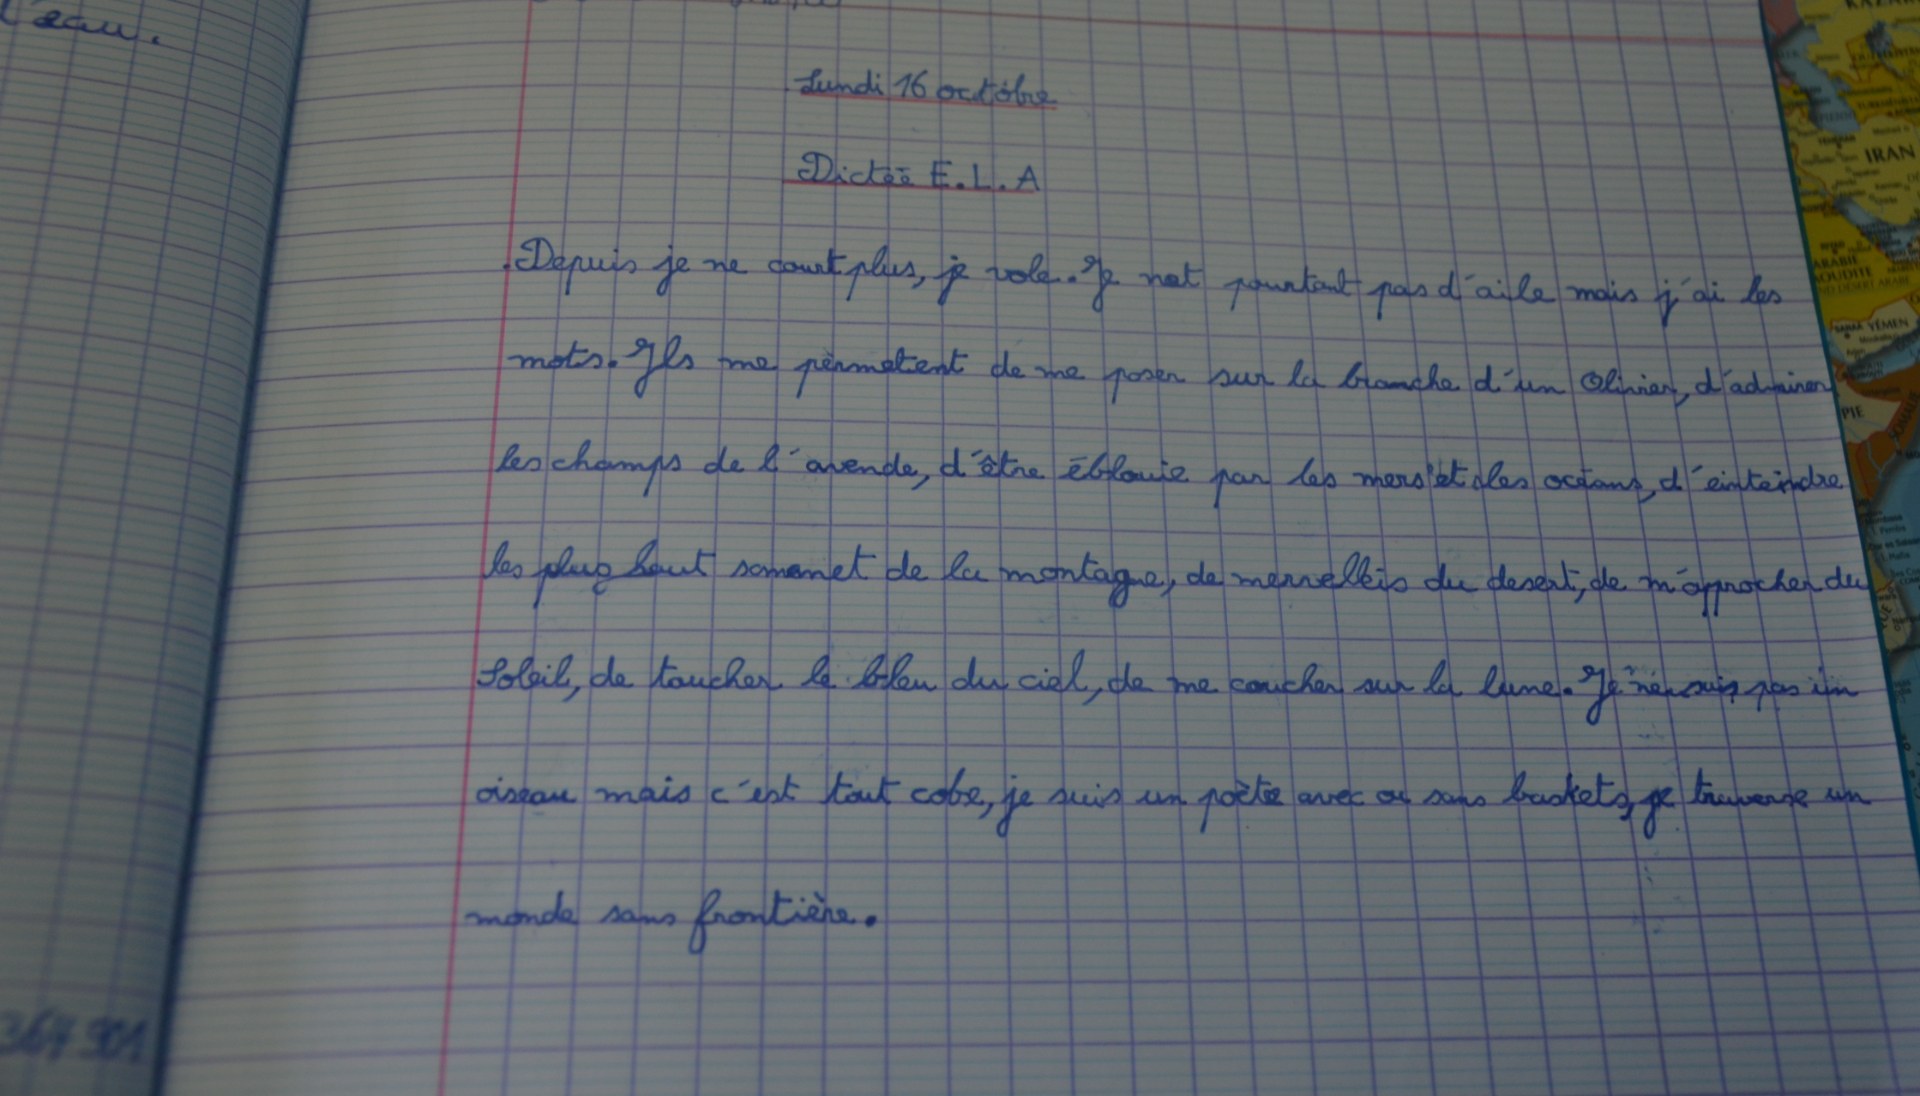 l'eau.
Lundi 16 octobre
Dictée E.L.A
Depuis je ne court plus, je vole. Je net pourtant pas d'aile mais j'ai les
mots. Ils me pèrmetent de me poser sur la branche d'un olivier, d'admirer
les champs de l'avende, d'être éblouie par les mers et les océans, d'einteindre
les plus haut sommet de la montagne, de mervelleis du desert, de m'approcher du
Soleil, de toucher le bleu du ciel, de me coucher sur la lune. Je ne suis pas un
oiseau mais c'est tout cobe, je suis un poète avec ou sans baskets, je traverse un
monde sans frontière.
364 901
IRAN
ARABIE
SAOUDITE
YÉMEN